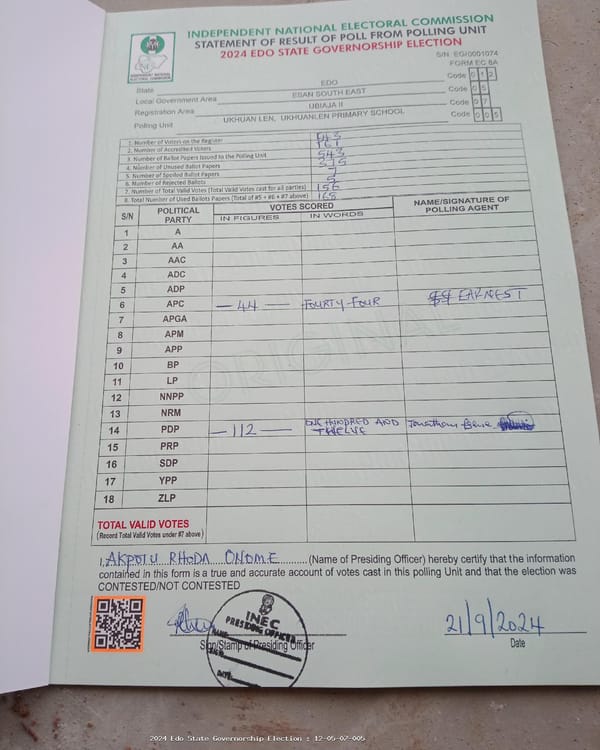 INDEPENDENT NATIONAL ELECTORAL COMMISSION
STATEMENT OF RESULT OF POLL FROM POLLING UNIT
2024 EDO STATE GOVERNORSHIP ELECTION
S/N EG/0001074
FORM EC 8A
State EDO Code 0 1 2
Local Government Area ESAN SOUTH EAST Code 0 5
Registration Area UBIAJA II Code 0 7
Polling Unit UKHUAN LEN, UKHUANLEN PRIMARY SCHOOL Code 0 0 5
1. Number of Voters on the Register
2. Number of Accredited Voters 161
3. Number of Ballot Papers Issued to the Polling Unit 543
4. Number of Unused Ballot Papers
5. Number of Spoiled Ballot Papers
6. Number of Rejected Ballots
7. Number of Total Valid Votes (Total Valid Votes cast for all parties) 156
8. Total Number of Used Ballots Papers (Total of #5 + #6 + #7 above) 168
S/N POLITICAL PARTY VOTES SCORED NAME/SIGNATURE OF POLLING AGENT
IN FIGURES IN WORDS
1 A
2 AA
3 AAC
4 ADC
5 ADP
6 APC — 44 — FOURTY-FOUR EARNEST
7 APGA
8 APM
9 APP
10 BP
11 LP
12 NNPP
13 NRM
14 PDP — 112 — ONE HUNDRED AND TWELVE Jonathan
15 PRP
16 SDP
17 YPP
18 ZLP
ORIGINAL
TOTAL VALID VOTES
(Record Total Valid Votes under #7 above)
I, AKPOTU RHODA ONOME (Name of Presiding Officer) hereby certify that the information
contained in this form is a true and accurate account of votes cast in this polling Unit and that the election was
CONTESTED/NOT CONTESTED
INEC
PRESIDING OFFICER
NAME
SIGN
DATE
21/9/2024
Sign/Stamp of Presiding Officer Date
2024 Edo State Governorship Election : 12-05-07-005